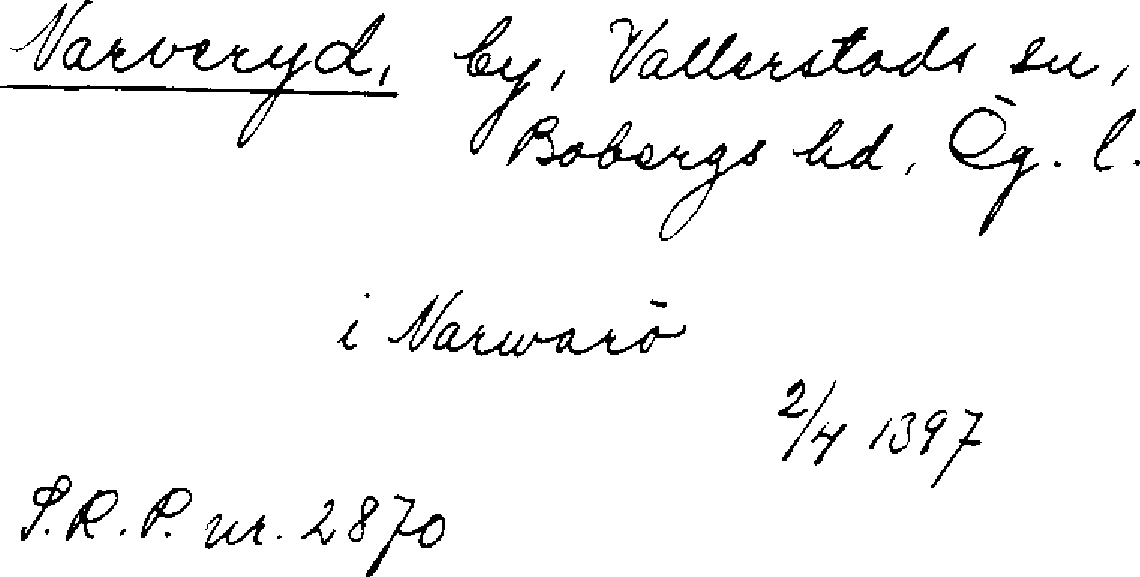 Narveryd, by, Vallerstads sn,
Bobergs hd, Ög. l.
i Narwarö
2/4 1397
S.R.P. nr. 2870